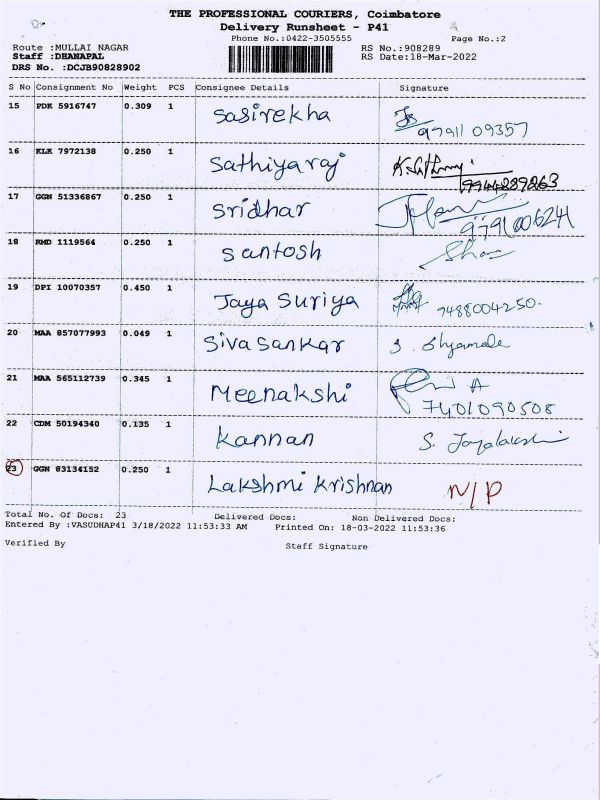 THE PROFESSIONAL COURIERS, Coimbatore
Delivery Runsheet - P41
Phone No.:0422-3505555 Page No.:2
Route :MULLAI NAGAR RS No.:908289
Staff :DHANAPAL RS Date:18-Mar-2022
DRS No. :DCJB90828902
S No Consignment No Weight PCS Consignee Details Signature
15 PDK 5916747 0.309 1 Sasirekha
97911 09357
16 KLK 7972138 0.250 1 Sathiyaraj
9944289263
17 GGN 51336867 0.250 1 Sridhar
9791006241
18 RMD 1119564 0.250 1 Santosh
19 DPI 10070357 0.450 1 Jaya Suriya 7488004250.
20 MAA 857077993 0.049 1 Sivasankar S. Shyamala
21 MAA 565112739 0.345 1 Meenakshi
7401090508
22 CDM 50194340 0.135 1 Kannan S. Jayalakshmi
23 GGN 83134152 0.250 1 Lakshmi Krishnan N/P
Total No. Of Docs: 23 Delivered Docs: Non Delivered Docs:
Entered By :VASUDHAP41 3/18/2022 11:53:33 AM Printed On: 18-03-2022 11:53:36
Verified By Staff Signature